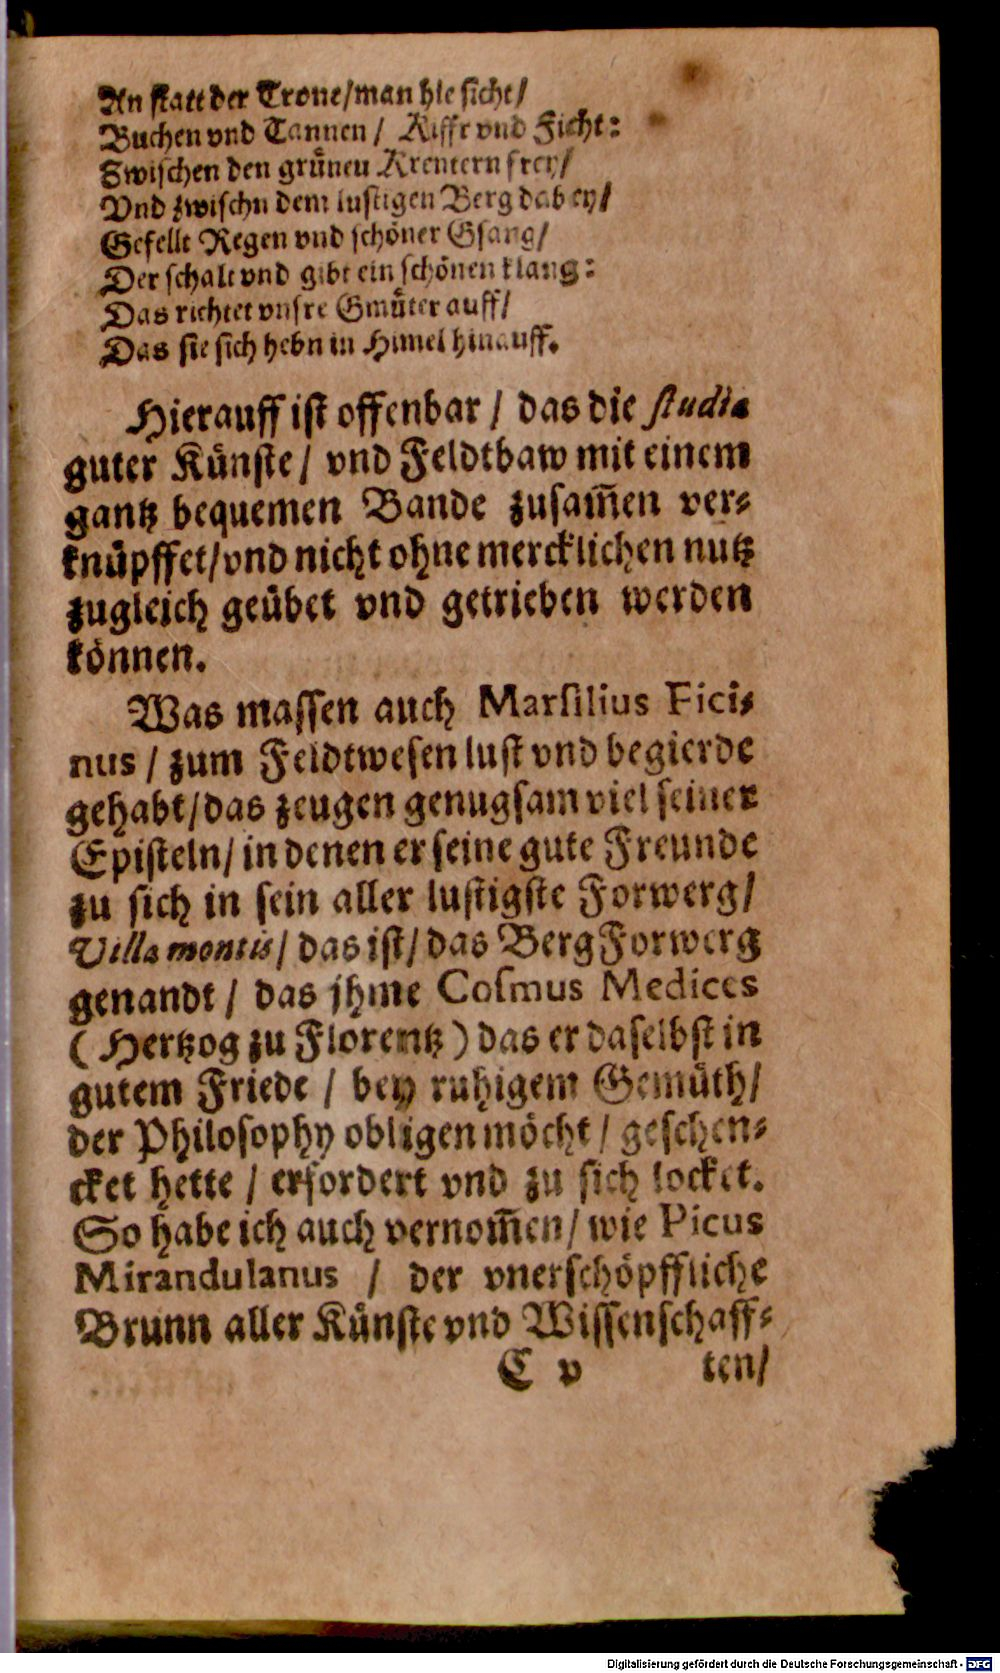 An statt der Trone/man hie sicht/
Buchen vnd Tannen / Kiffr vnd Ficht:
Zwischen den grünen Kreutern frey/
Vnd zwischn dem lustigen Berg dabey/
Gefellt Regen vnd schöner Gsang/
Der schalt vnd gibt ein schönen klang:
Das richtet vnsre Gmüter auff/
Das sie sich hebn in Himel hinauff.
Hierauff ist offenbar / das die studia
guter Künste / vnd Feldtbaw mit einem
gantz bequemen Bande zusam̃en ver-
knüpffet/vnd nicht ohne mercklichen nutz
zugleich geübet vnd getrieben werden
können.
Was massen auch Marsilius Fici-
nus / zum Feldtwesen lust vnd begierde
gehabt/das zeugen genugsam viel seiner
Episteln/ in denen er seine gute Freunde
zu sich in sein aller lustigste Forwerg/
Villa montis/ das ist/ das Berg Forwerg
genandt / das jhme Cosmus Medices
(Hertzog zu Florentz) das er daselbst in
gutem Friede / bey ruhigem Gemüth/
der Philosophy obligen möcht / geschen-
cket hette / erfordert vnd zu sich locket.
So habe ich auch vernom̃en/ wie Picus
Mirandulanus / der vnerschöpffliche
Brunn aller Künste vnd Wissenschaff-
C v ten/
Digitalisierung gefördert durch die Deutsche Forschungsgemeinschaft - DFG